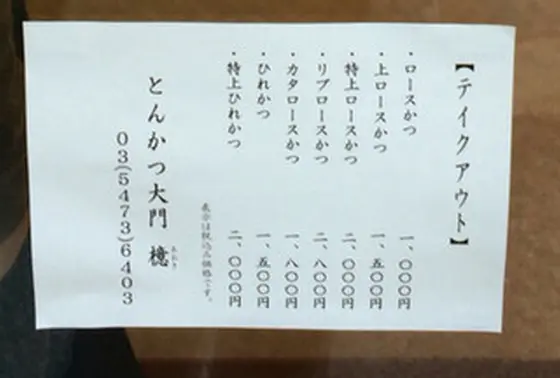 【テイクアウト】
・ロースかつ 一、〇〇〇円
・上ロースかつ 一、五〇〇円
・特上ロースかつ 二、〇〇〇円
・リブロースかつ 二、八〇〇円
・カタロースかつ 一、八〇〇円
・ひれかつ 一、五〇〇円
・特上ひれかつ 二、〇〇〇円
表示は税込み価格です。
とんかつ大門 檍
あおき
03(5473)6403